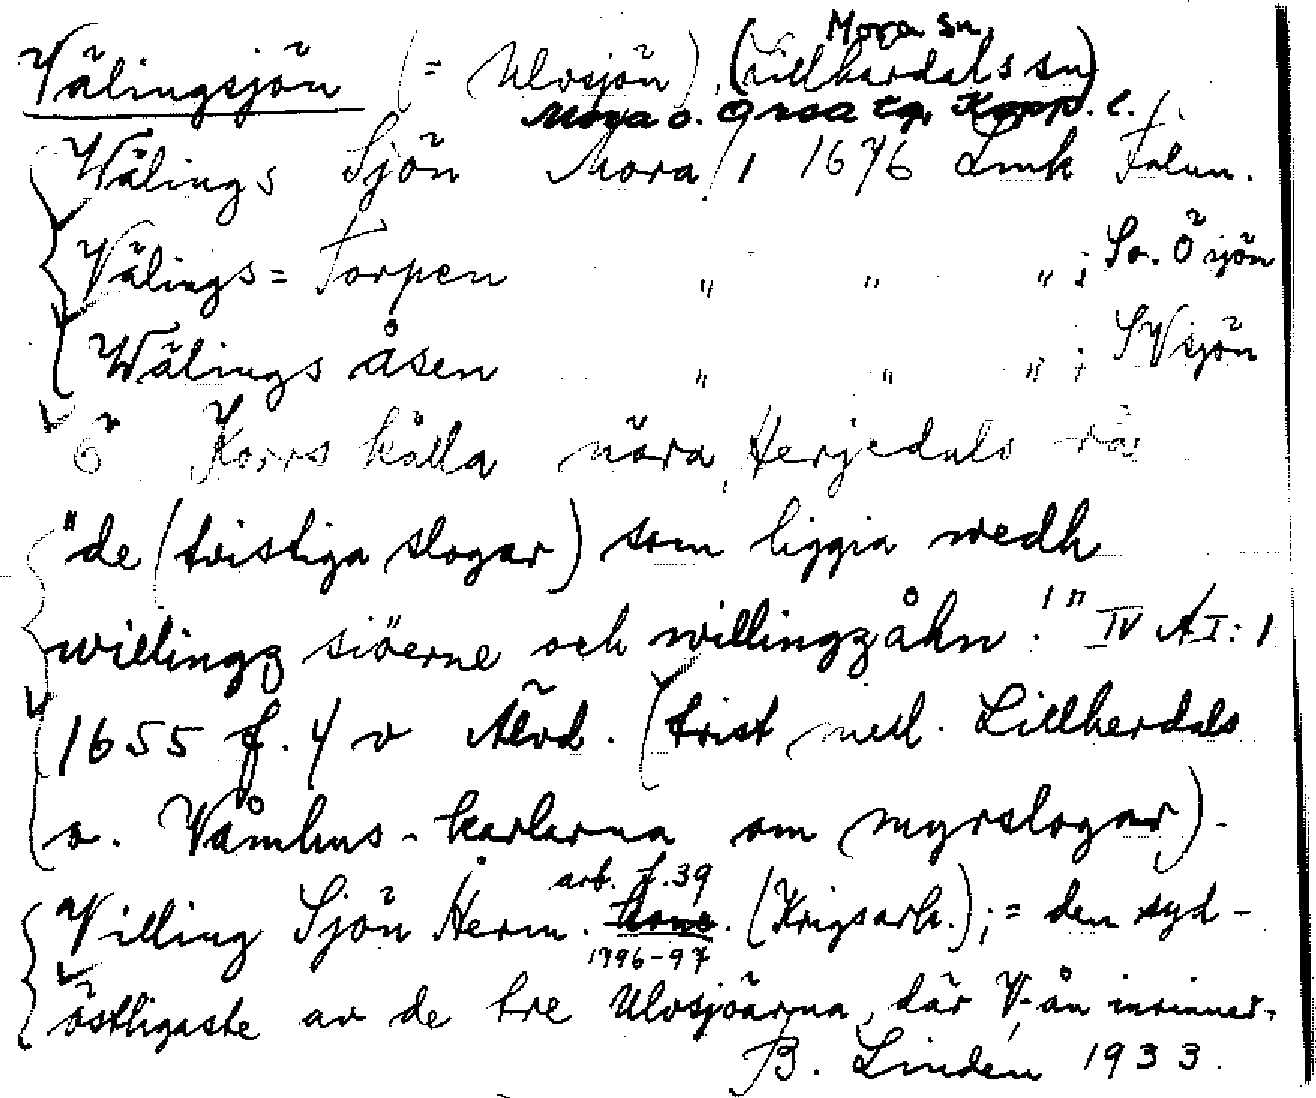 Mora sn,
Välingsjön (= Ulvsjön), (Lillherdals sn)
Mora o. Orsa tg, Kopp. l.
Wälings Sjön Mora/1 1676 Lmk Falun.
Välings=Torpen " " " ; So. Ö sjön
Wälings åsen " " " ; SV sjön
Ö Korrs källa nära Herjedals rå
"de (tvistiga slogar) som liggia wedh
willingz siöerne och willingzåhn!" IV AI: 1
1655 f. 4 v Älvd. (tvist mell. Lillherdals
o. Våmhus-karlarna om myrslogar).
arb. f. 39
Villing Sjön Herm. (Krigsark.); = den syd-
1796-97
östligaste av de tre Ulvsjöarna, där V-ån inrinner.
B. Linden 1933.